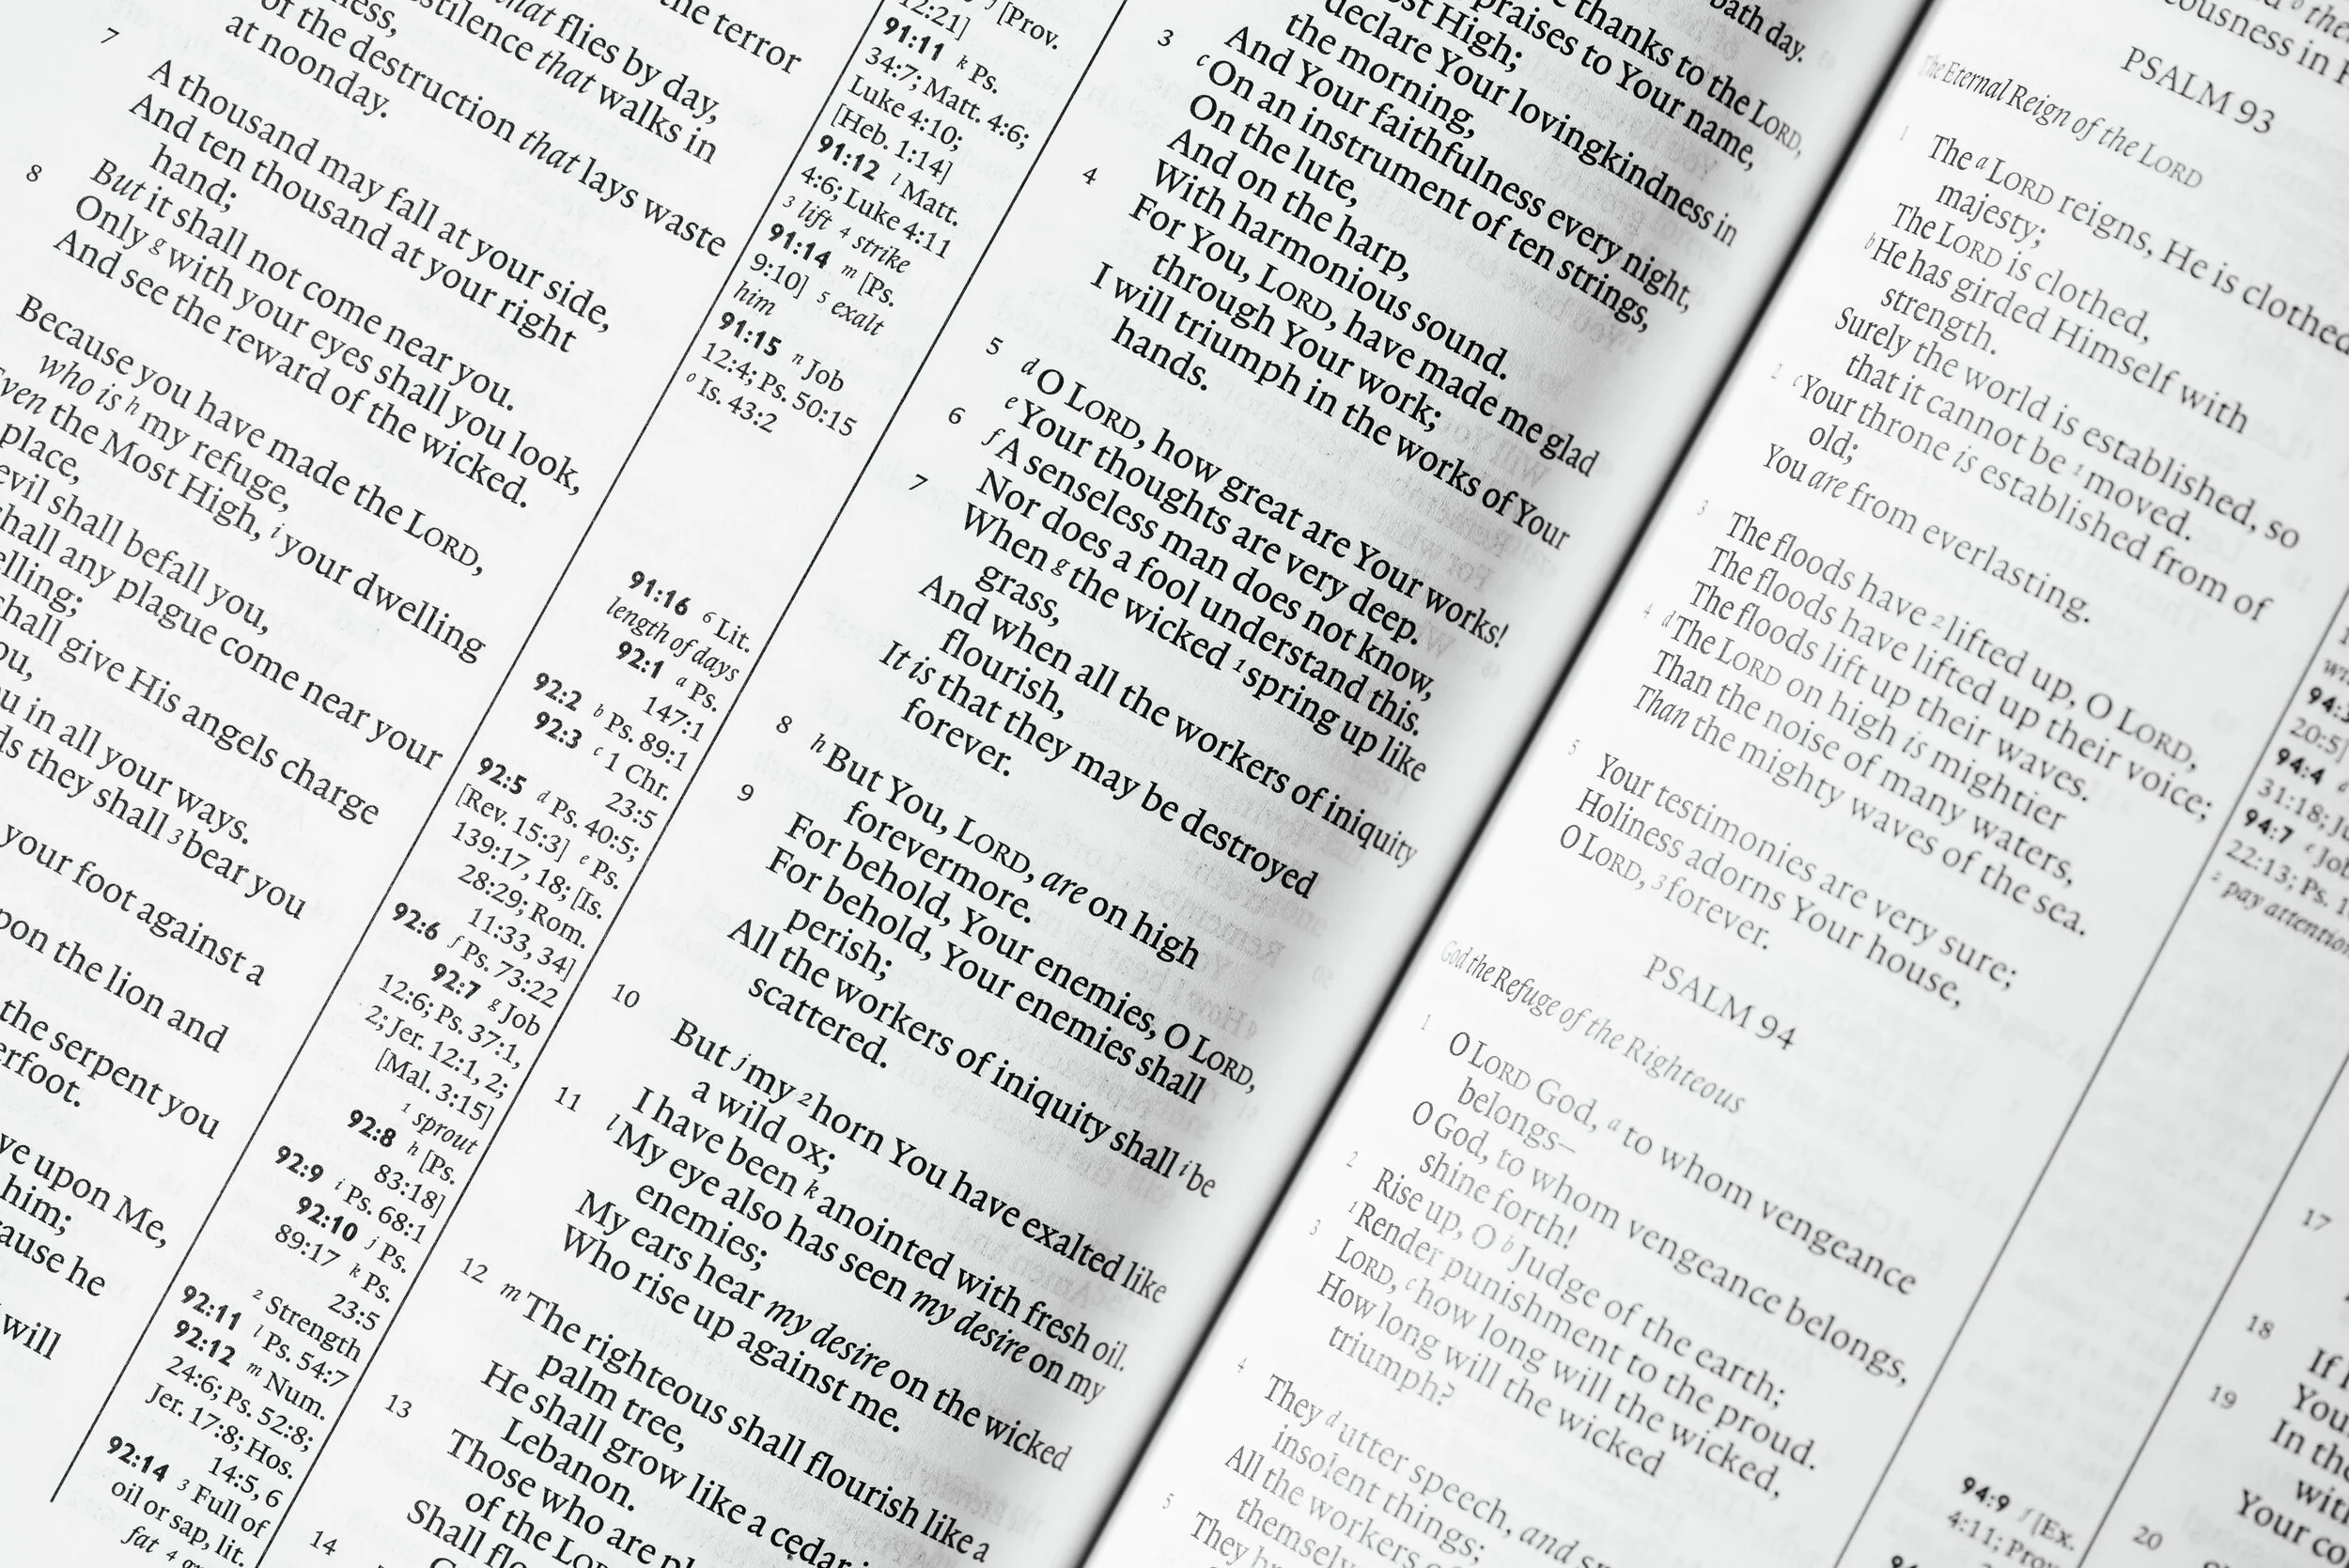 the terror
that flies by day,
that walks in
of the destruction that lays waste
at noonday.
7
A thousand may fall at your side,
And ten thousand at your right
hand;
But it shall not come near you.
8
Only g with your eyes shall you look,
And see the reward of the wicked.
Because you have made the LORD,
who is h my refuge,
the Most High, i your dwelling
place,
evil shall befall you,
shall any plague come near your
shall give His angels charge
in all your ways.
they shall 3 bear you
your foot against a
the lion and
the serpent you
upon Me,
him;
he
will
12:21] [Prov.
91:11 k Ps.
34:7; Matt. 4:6;
Luke 4:10;
[Heb. 1:14]
91:12 l Matt.
4:6; Luke 4:11
3 lift 4 strike
91:14 m [Ps.
9:10] 5 exalt
him
91:15 n Job
12:4; Ps. 50:15
o Is. 43:2
91:16 6 Lit.
length of days
92:1 a Ps.
147:1
92:2 b Ps. 89:1
92:3 c 1 Chr.
23:5
92:5 d Ps. 40:5;
[Rev. 15:3] e Ps.
139:17, 18; [Is.
28:29; Rom.
11:33, 34]
92:6 f Ps. 73:22
92:7 g Job
12:6; Ps. 37:1,
2; Jer. 12:1, 2;
[Mal. 3:15]
1 sprout
92:8 h [Ps.
83:18]
92:9 i Ps. 68:1
92:10 j Ps.
89:17 k Ps.
23:5
2 Strength
92:11 l Ps. 54:7
92:12 m Num.
24:6; Ps. 52:8;
Jer. 17:8; Hos.
14:5, 6
92:14 3 Full of
oil or sap, lit.
fat 4
day.
thanks to the LORD,
praises to Your name,
High;
declare Your lovingkindness in
the morning,
And Your faithfulness every night,
3 c On an instrument of ten strings,
On the lute,
And on the harp,
With harmonious sound.
4
For You, LORD, have made me glad
through Your work;
I will triumph in the works of Your
hands.
5 d O LORD, how great are Your works!
e Your thoughts are very deep.
6 f A senseless man does not know,
Nor does a fool understand this.
7
When g the wicked 1 spring up like
grass,
And when all the workers of iniquity
flourish,
It is that they may be destroyed
forever.
8 h But You, LORD, are on high
forevermore.
9
For behold, Your enemies, O LORD,
For behold, Your enemies shall
perish;
All the workers of iniquity shall i be
scattered.
10
But j my 2 horn You have exalted like
a wild ox;
I have been k anointed with fresh oil.
11 l My eye also has seen my desire on my
enemies;
My ears hear my desire on the wicked
Who rise up against me.
12 m The righteous shall flourish like a
palm tree,
He shall grow like a cedar
Lebanon.
13
Those who are
of the LORD
Shall
14
the
in
PSALM 93
The Eternal Reign of the LORD
1
The a LORD reigns, He is clothed
majesty;
The LORD is clothed,
b He has girded Himself with
strength.
Surely the world is established, so
that it cannot be 1 moved.
2 c Your throne is established from of
old;
You are from everlasting.
3
The floods have 2 lifted up, O LORD,
The floods have lifted up their voice;
The floods lift up their waves.
4 d The LORD on high is mightier
Than the noise of many waters,
Than the mighty waves of the sea.
5
Your testimonies are very sure;
Holiness adorns Your house,
O LORD, 3 forever.
PSALM 94
God the Refuge of the Righteous
1
O LORD God, a to whom vengeance
belongs—
O God, to whom vengeance belongs,
shine forth!
2
Rise up, O b Judge of the earth;
1 Render punishment to the proud.
3
LORD, c how long will the wicked,
How long will the wicked
triumph?
4
They d utter speech, and
insolent things;
All the workers
5
They
20:5]
94:4
31:18;
94:7 Job
22:13; Ps.
2 pay attention
94:9 f [Ex.
4:11; Prov.
17
18
If
19
In the
Your
20